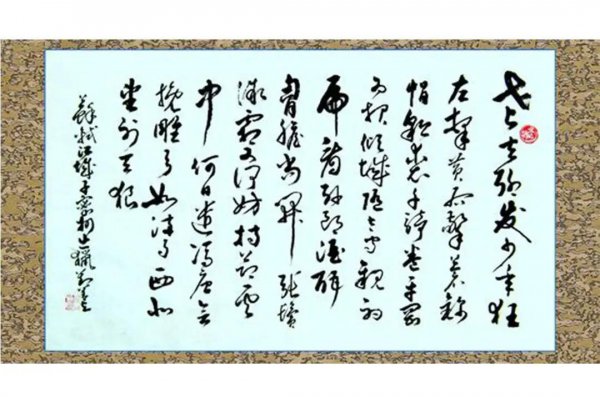 老夫聊发少年狂
左牵黄右擎苍锦
帽貂裘千骑卷平冈
为报倾城随太守亲射
虎看孙郎酒酣
胸胆尚开张鬓
微霜又何妨持节云
中何日遣冯唐会
挽雕弓如满月西北
望射天狼
蘇軾江城子密州出獵